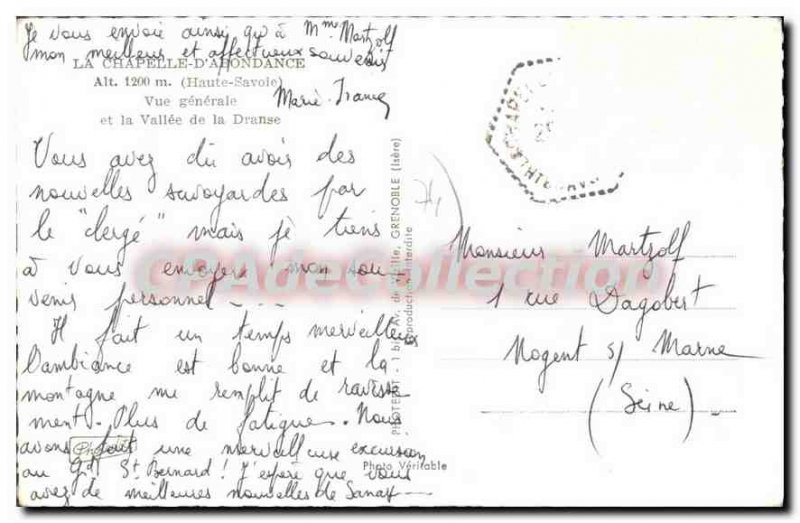 Je vous envoie ainsi qu'à Mme Martzolf
mon meilleur et affectueux souvenir
LA CHAPELLE-D'ABONDANCE
Alt. 1200 m. (Haute-Savoie)
Marie-France
Vue générale
et la Vallée de la Dranse
Vous avez dû avoir des
nouvelles savoyardes par
le "clergé" mais je tiens
à vous envoyer mon sou-
venir personnel - - -
Il fait un temps merveilleux
L'ambiance est bonne et la
montagne me remplit de ravisse-
ment. Plus de fatigue. Nous
avons fait une merveilleuse excursion
au Gd St Bernard ! J'espère que vous
avez de meilleures nouvelles de
Photo Véritable
GRENOBLE (Isère)
Reproduction interdite
Monsieur Martzolf
1 rue Dagobert
Nogent s/ Marne
(Seine)
CPAdeCollection